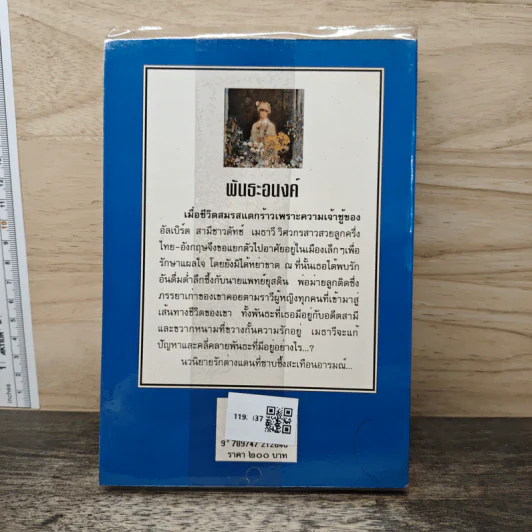 พันธะอนงค์
เมื่อชีวิตสมรสแตกร้าวเพราะความเจ้าชู้ของ
อัลเบิร์ต สามีชาวดัทช์ เมธาวี วิศวกรสาวสวยลูกครึ่ง
ไทย-อังกฤษจึงขอแยกตัวไปอาศัยอยู่ในเมืองเล็กๆเพื่อ
รักษาแผลใจ โดยยังมิได้หย่าขาด ณ ที่นั้นเธอได้พบรัก
อันดื่มด่ำลึกซึ้งกับนายแพทย์ยุสติน พ่อม่ายลูกติดซึ่ง
ภรรยาเก่าของเขาคอยตามราวีผู้หญิงทุกคนที่เข้ามาสู่
เส้นทางชีวิตของเขา ทั้งพันธะที่เธอมีอยู่กับอดีตสามี
และขวากหนามที่ขวางกั้นความรักอยู่ เมธาวีจะแก้
ปัญหาและคลี่คลายพันธะที่มีอยู่อย่างไร...?
นวนิยายรักต่างแดนที่ซาบซึ้งสะเทือนอารมณ์...
119.
9 789747 212846
ราคา ๒๐๐ บาท
inches